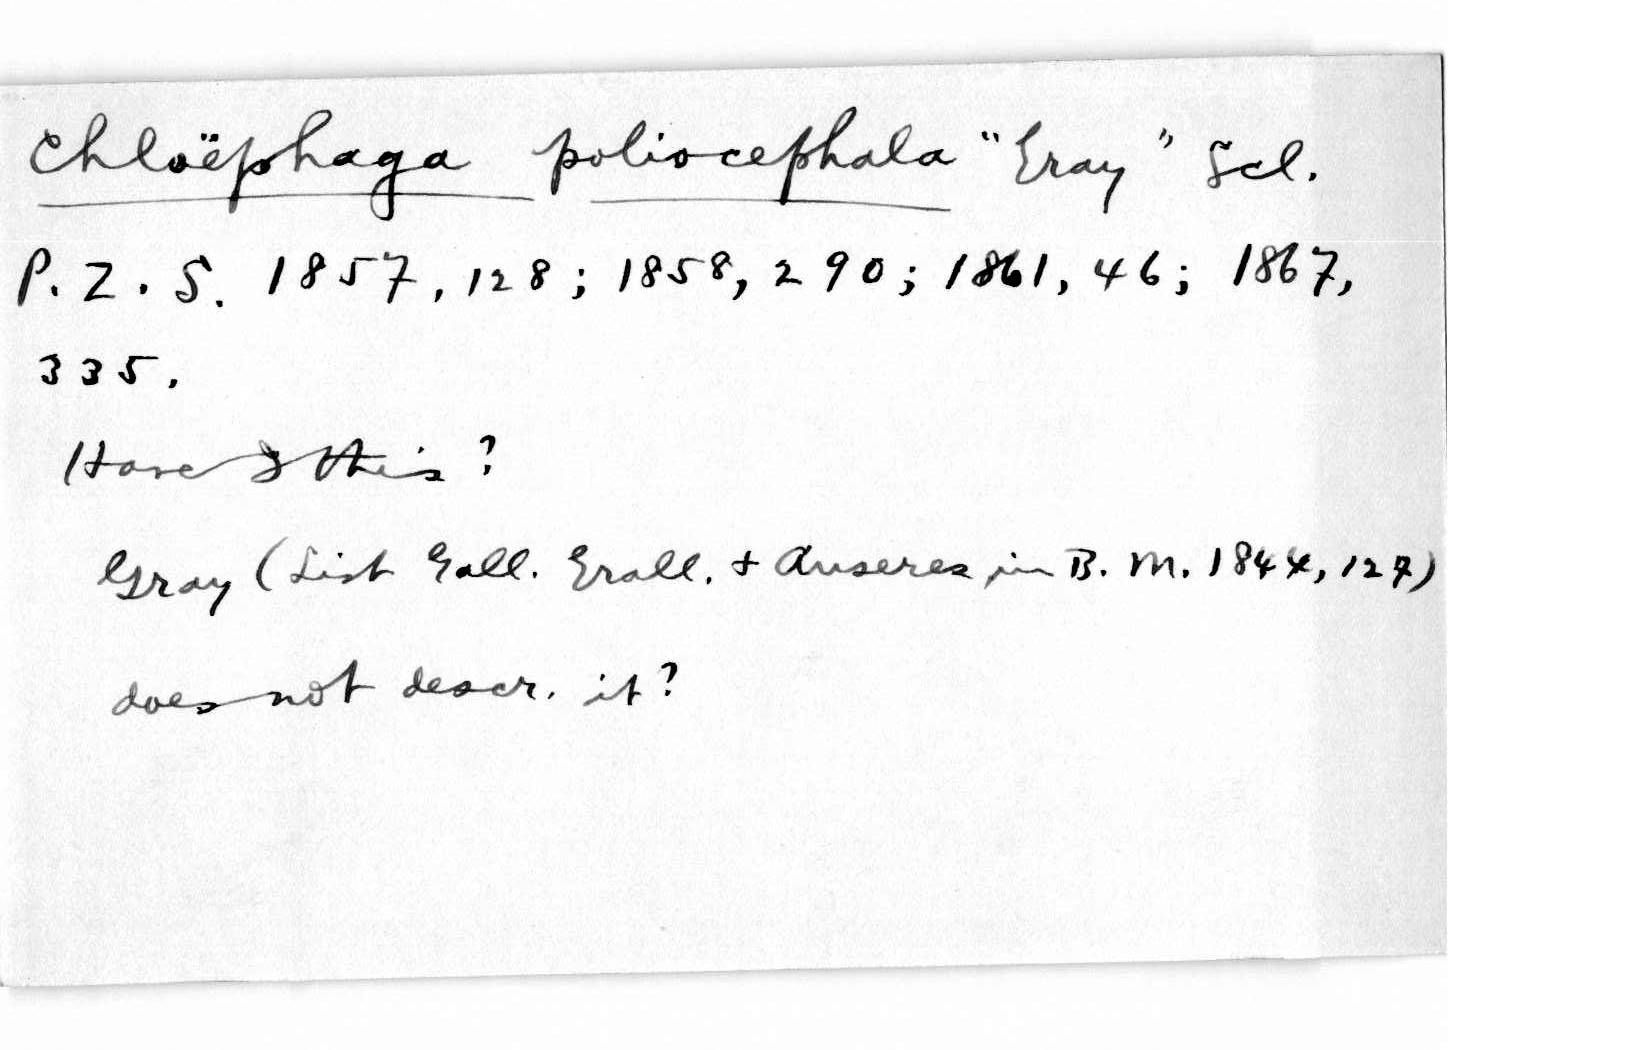 Chloëphaga poliocephala "Gray" Scl.
P. Z. S. 1857, 128; 1858, 290; 1861, 46; 1867,
335.
Have I this?
Gray (List Gall. Grall. + Anseres in B. M. 1844, 127)
does not descr. it?